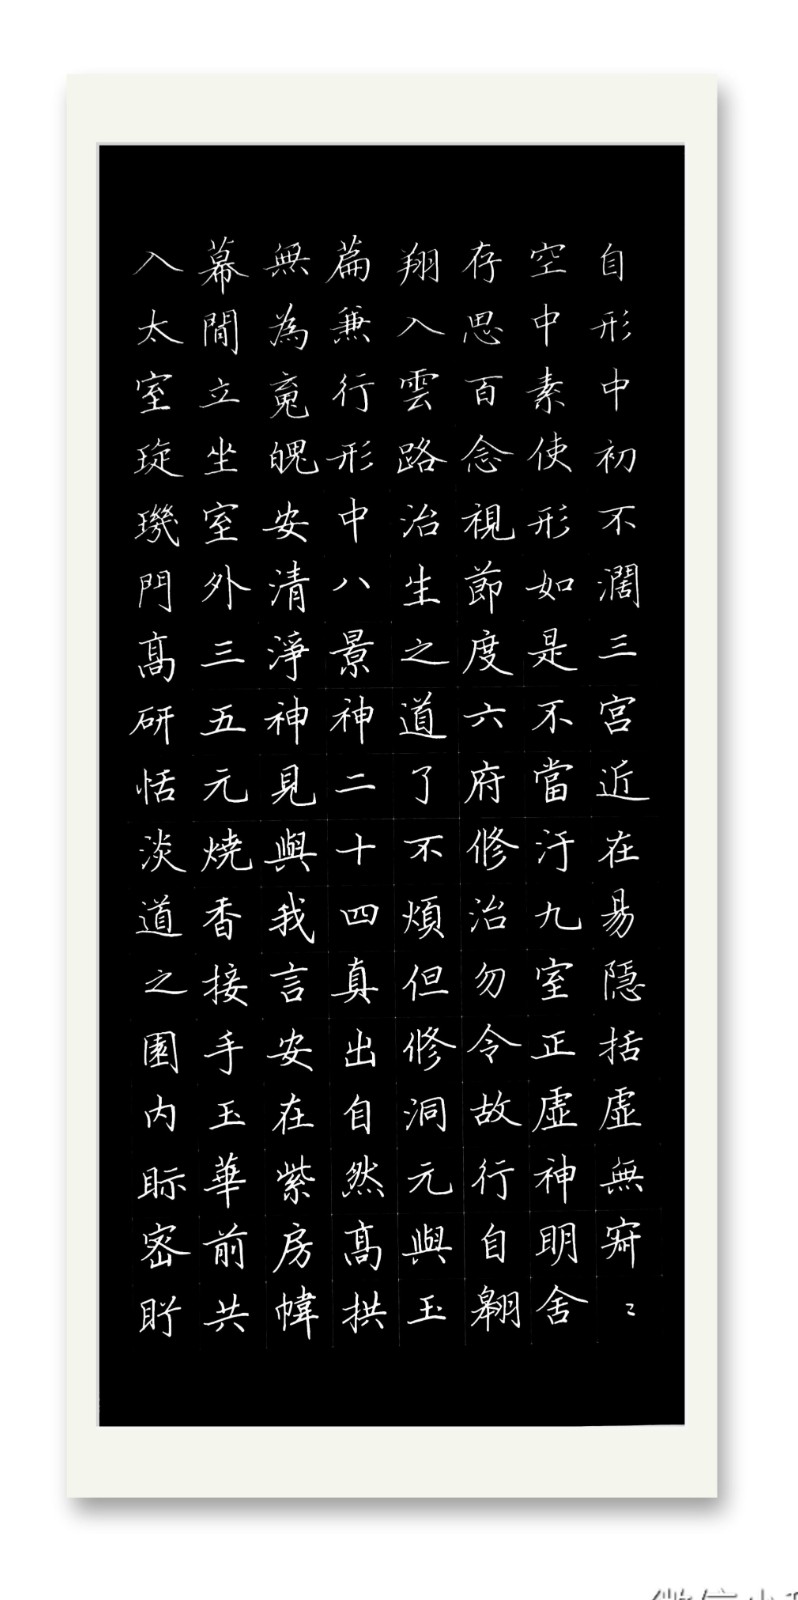 自形中初不濶三宮近在易隱括虛無寂〻
空中素使形如是不當汙九室正虛神明舍
存思百念視節度六府修治勿令故行自翱
翔入雲路治生之道了不煩但修洞元與玉
篇兼行形中八景神二十四真出自然髙拱
無為魂魄安清淨神見與我言安在紫房幃
幕間立坐室外三五元燒香接手玉華前共
入太室璇璣門髙研恬淡道之園內眎密盱